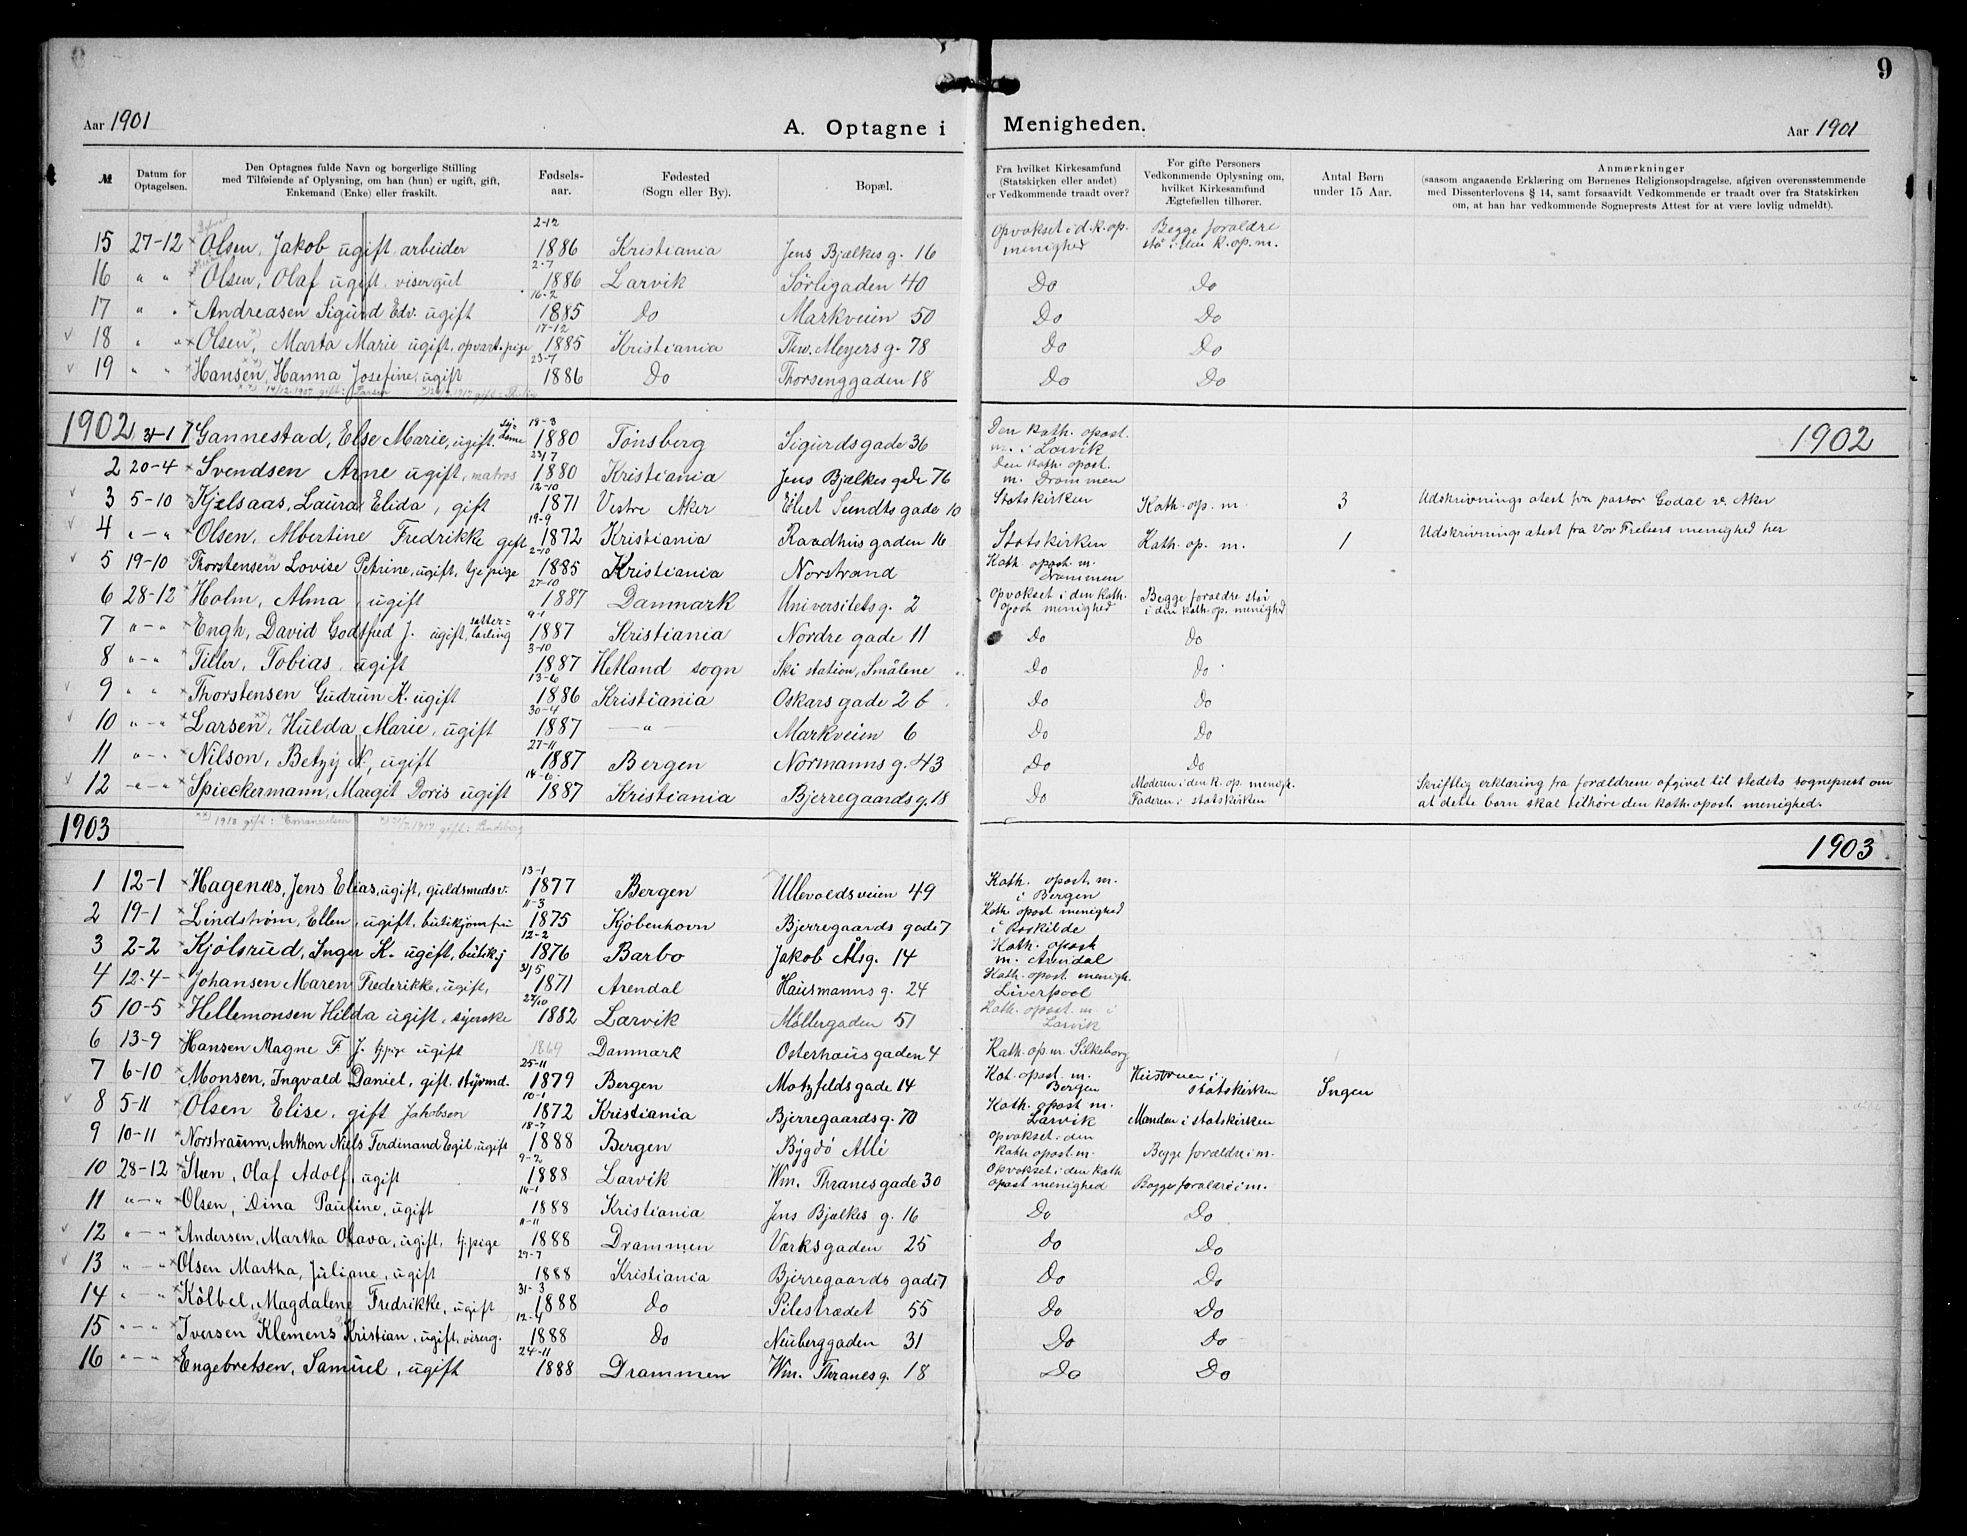 9
Aar 1901
A. Optagne i Menigheden.
Aar 1901
№
Datum for Optagelsen.
Den Optagnes fulde Navn og borgerlige Stilling
med Tilføielse af Oplysning, om han (hun) er ugift, gift,
Enkemand (Enke) eller fraskilt.
Fødsels-
aar.
Fødested
(Sogn eller By).
Bopæl.
Fra hvilket Kirkesamfund
(Statskirken eller andet)
er Vedkommende traadt over?
For gifte Personers
Vedkommende Oplysning om,
hvilket Kirkesamfund
Ægtefællen tilhører.
Antal Børn
under 15 Aar.
Anmærkninger
(saasom angaaende Erklæring om Børnenes Religionsopdragelse, afgiven overensstemmende
med Dissenterlovens § 14, samt forsaavidt Vedkommende er traadt over fra Statskirken
om, at han har vedkommende Sogneprests Attest for at være lovlig udmeldt).
15 27-12 Olsen, Jakob ugift arbeider 2-12 1886 Kristiania Jens Bjelkes g. 16 Opvokset i d. k. op. menighed Begge forældre stå i den k. op. m.
16 " " Olsen, Olaf ugift. visergut 2-7 1886 Larvik Sørligaden 40 Do Do
17 " " Andreasen Sigurd Edv. ugift 16-2 1885 Do Markveien 50 Do Do
18 " " Olsen, Marta Marie ugift, opvart. pige 17-12 1885 Kristiania Thv. Meyers g. 78 Do Do
19 " " Hansen, Hanna Josefine, ugift 23-7 1886 Do Thorsenggaden 18 Do Do
14/12 1907 gift: Larsen
1902 1902
31-1 1 Gannestad, Else Marie, ugift. 18-3 1880 Tönsberg Sigurdsgade 36 Den kath. apost. m. i Larvik
2 20-4 Svendsen Arne ugift, matros 23/7 1880 Kristiania Jens Bjælkes gde 76 Den kath. apost. m. Drammen
3 5-10 Kjelsaas, Laura Elida, gift 12-10 1871 Vestre Aker Eilet Sundts gade 10 Statskirken Kath. op. m. 3 Udskrivnings atest fra pastor Godal v. Aker
4 " - " Olsen, Albertine Fredrikke gift 19-9 1872 Kristiania Raadhus gaden 16 Statskirken Kath. op. m. 1 Udskrivnings atest fra Vor Frelsers menighed her
5 19-10 Thorstensen Lovise Petrine, ugift, tj. pige 2-10 1885 Kristiania Norstrand Kath. apost. m. Drammen
6 28-12 Holm, Alma, ugift 27-10 1887 Danmark Universitetsg. 2 Opvokset i den kath. apost menighed Begge forældre står i den kath. op. menighed
7 " - " Engh, David Godtfred J. ugift, sætterlærling 9-1 1887 Kristiania Nordre gade 11 Do Do
8 " - " Tiller, Tobias, ugift 3-10 1887 Hetland sogn Ski station, Smålene Do Do
9 " " Thorstensen Gudrun K. ugift 13-6 1886 Kristiania Oskars gade 2 b Do Do
10 " - " Larsen, Hulda Marie, ugift 30-4 1887 - " - Markveien 6 Do Do
11 " - " Nilson, Betzy N., ugift 27-11 1887 Bergen Normanns g. 43 Do Do
12 " - " Spieckermann, Margit Doris ugift 14-6 1887 Kristiania Bjerregaards g. 18 Do Moderen i den k. op. menigh. Faderen i statskirken Skriftlig erklæring fra forældrene afgivet til stedets sogneprest om at dette barn skal tilhøre den kath. apost. menighed.
1918 gift: Emanuelsen 1917 gift: Lindberg
1903 1903
1 12-1 Hagenæs, Jens Elias, ugift, guldsmedsv. 13-1 1877 Bergen Ullevoldsveien 49 Kath. apost. m. i Bergen
2 19-1 Lindstrøm, Ellen, ugift, butikjomfru 11-3 1875 Kjöbenhovn Bjerregaards gade 7 Kath. apost menighed i Roskilde
3 2-2 Kjölsrud, Inger K. ugift, butikj 12-2 1876 Barbo Jakob Ålsg. 14 Kath. apost m. Arendal
4 12-4 Johansen Maren Frederikke, ugift, 31/5 1871 Arendal Hausmanns g. 24 Kath. apost. menigh. Liverpool
5 10-5 Hellemonsen Hilda ugift, syerske 27/10 1882 Larvik Møllergaden 51 Kath. apost. m i Larvik
6 13-9 Hansen Magne F J. tj. pige ugift 1869 Danmark Osterhausgaden 4 Kath. op. m. Silkeborg
7 6-10 Monsen, Ingvald Daniel, gift. styrmd. 25-11 1879 Bergen Motzfeldsgade 14 Kat. apost. m. Bergen Hustruen i statskirken Ingen
8 5-11 Olsen Elise, gift Jakobsen 10-1 1872 Kristiania Bjerregaardsg. 70 Kath. apost m. Larvik Manden i statskirken
9 10-11 Norstraum, Anthon Niels Ferdinand Egil, ugift 18-7 1888 Bergen Bygdö Allé Opvokset i den kath apost. m. Begge forældre i m.
10 28-12 Steen, Olaf Adolf, ugift 9-2 1888 Larvik Wm. Thranes gade 30 Opvokset i den kath apost menighed Begge forældre i m.
11 " - " Olsen, Dina Pauline, ugift 14-1 1888 Kristiania Jens Bjælkes g. 16 Do Do
12 " - " Andersen, Martha Olava, ugift, tj. pige 11-11 1888 Drammen Værksgaden 25 Do Do
13 " - " Olsen Martha, Juliane, ugift 29-7 1888 Kristiania Bjerregaards gade 7 Do Do
14 " - " Kölbel, Magdalene Fredrikke, ugift 31-3 1888 Do Pilestrædet 55 Do Do
15 " - " Iversen Klemens Kristian, ugift, viserg. 12-4 1888 Do Neuberggaden 31 Do Do
16 " - " Engebretsen, Samuel, ugift 24-11 1888 Drammen Wm. Thranes g. 18 Do Do